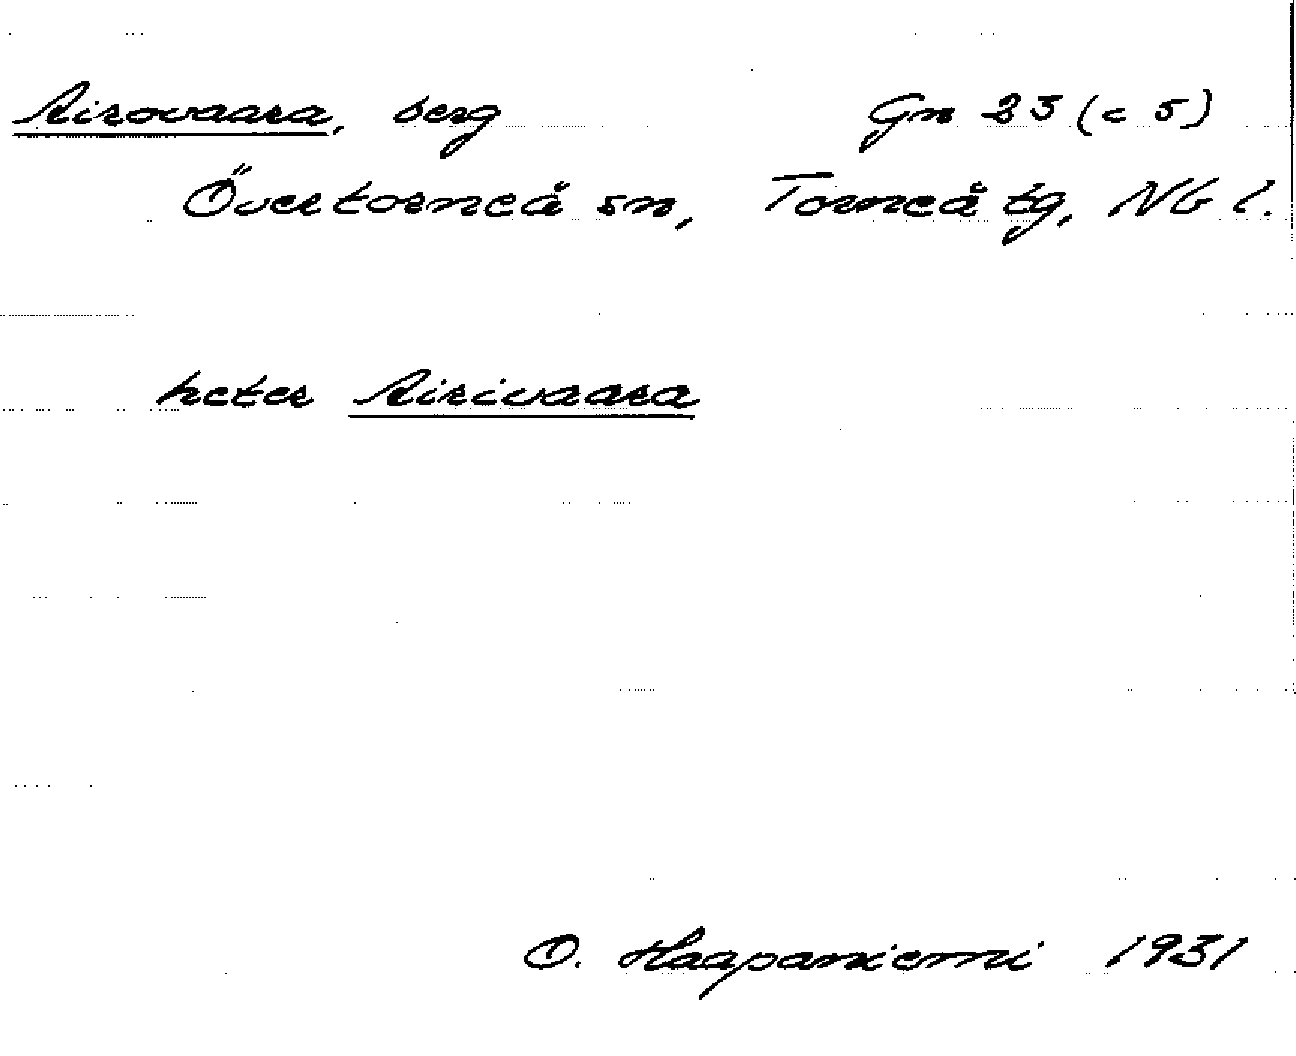 Airovaara, berg Gn 23 (c 5)
Övertorneå sn, Torneå tg, Nb l.
heter Airivaara
O. Haapaniemi 1931